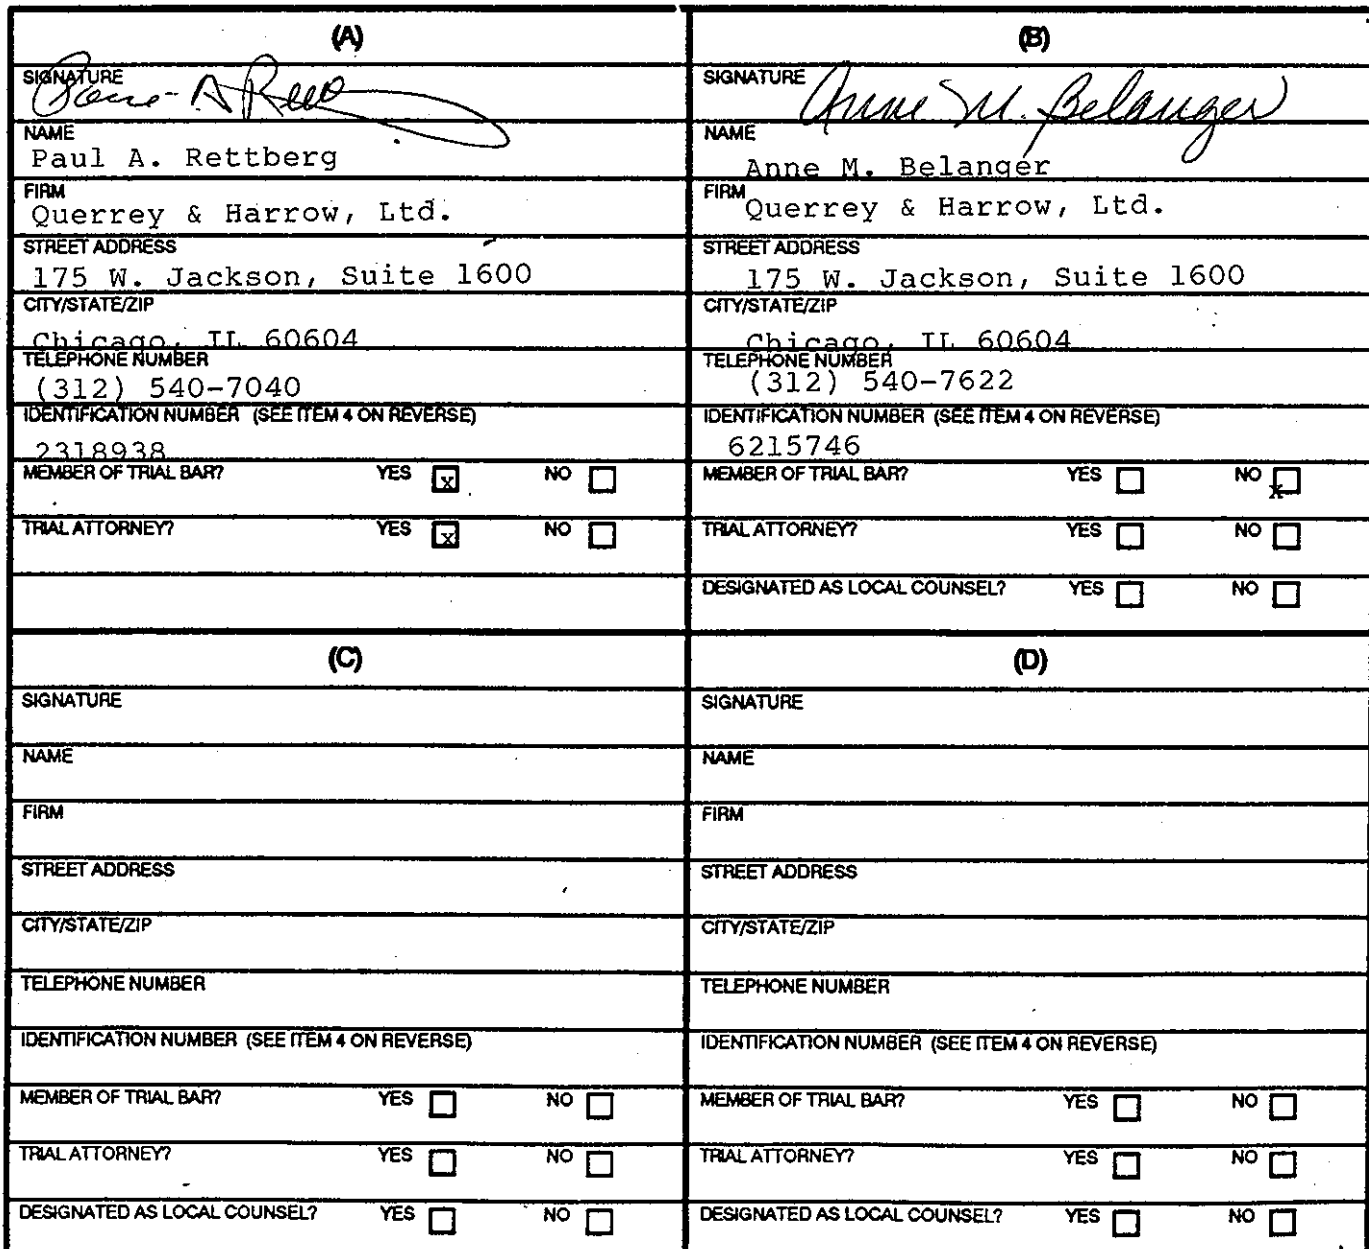 (A)
SIGNATURE
NAME
Paul A. Rettberg
FIRM
Querrey & Harrow, Ltd.
STREET ADDRESS
175 W. Jackson, Suite 1600
CITY/STATE/ZIP
Chicago, IL 60604
TELEPHONE NUMBER
(312) 540-7040
IDENTIFICATION NUMBER (SEE ITEM 4 ON REVERSE)
2318938
MEMBER OF TRIAL BAR? YES x NO
TRIAL ATTORNEY? YES x NO
(B)
SIGNATURE Anne M. Belanger
NAME
Anne M. Belanger
FIRM
Querrey & Harrow, Ltd.
STREET ADDRESS
175 W. Jackson, Suite 1600
CITY/STATE/ZIP
Chicago, IL 60604
TELEPHONE NUMBER
(312) 540-7622
IDENTIFICATION NUMBER (SEE ITEM 4 ON REVERSE)
6215746
MEMBER OF TRIAL BAR? YES NO x
TRIAL ATTORNEY? YES NO
DESIGNATED AS LOCAL COUNSEL? YES NO
(C)
SIGNATURE
NAME
FIRM
STREET ADDRESS
CITY/STATE/ZIP
TELEPHONE NUMBER
IDENTIFICATION NUMBER (SEE ITEM 4 ON REVERSE)
MEMBER OF TRIAL BAR? YES NO
TRIAL ATTORNEY? YES NO
DESIGNATED AS LOCAL COUNSEL? YES NO
(D)
SIGNATURE
NAME
FIRM
STREET ADDRESS
CITY/STATE/ZIP
TELEPHONE NUMBER
IDENTIFICATION NUMBER (SEE ITEM 4 ON REVERSE)
MEMBER OF TRIAL BAR? YES NO
TRIAL ATTORNEY? YES NO
DESIGNATED AS LOCAL COUNSEL? YES NO